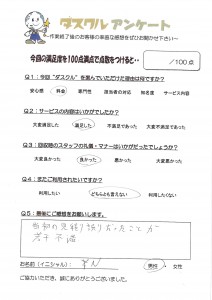 ダスクル アンケート
～作業終了後のお客様の率直な感想をぜひお聞かせ下さい～
今回の満足度を100点満点で点数をつけると・・ /100点
Q1：今回“ダスクル”を選んでいただけた理由は何ですか？
安心感 料金 専門性 担当者の対応 知名度 サービス内容
Q2：サービスの内容はいかがでしたか？
大変満足した 満足した 不満足であった 大変不満足であった
Q3：回収後のスタッフの礼儀・マナーはいかがだったでしょうか？
大変良かった 良かった 悪かった 大変悪かった
Q4：またご利用されたいですか？
利用したい どちらとも言えない 利用したくない
Q5：最後にご感想をお願いします。
当初の見積り
若干不満
お名前（イニシャル）： Y.N 男性 ・ 女性
ご協力いただき、誠にありがとうございました。